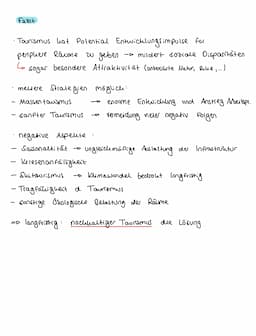 Fazit
· Tourismus hat Potential Entwicklungsimpulse für
periphere Räume zu geben → mindert soziale Disparitäten
↳ sogar besondere Attraktivität (unberührte Natur, Ruhe,...)
· mehrere Strategien möglich:
- Massentourismus → enorme Entwicklung und Anstieg Arbeitspl.
- sanfter Tourismus → Vermeidung vieler negativ. Folgen
· negative Aspekte:
- Saisonalität → ungleichmäßige Auslastung der Infrastruktur
- Krisenanfälligkeit
- Skitourismus → Klimawandel bedroht langfristig
- Tragfähigkeit d. Tourismus
- sonstige ökologische Belastung der Räume
=> langfristig: nachhaltiger Tourismus die Lösung